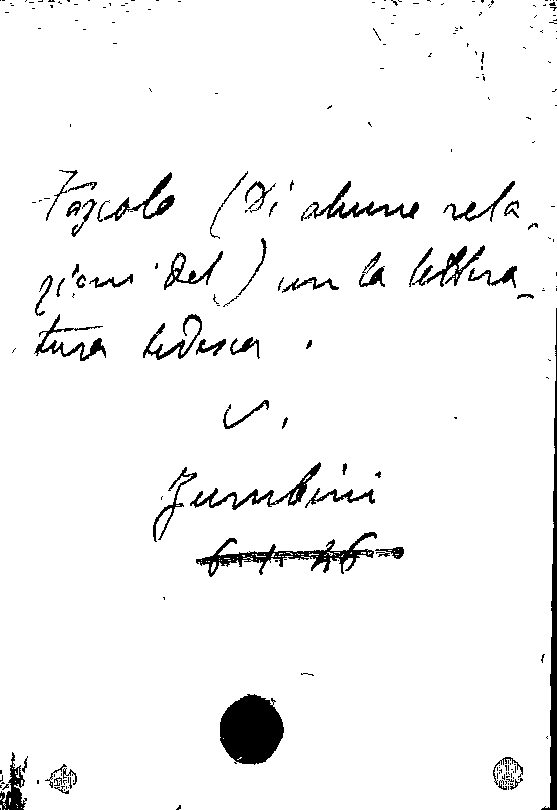 Foscolo (Di alcune rela-
zioni del) con la lettera-
tura tedesca.
V.
Zumbini
6. 1. 46